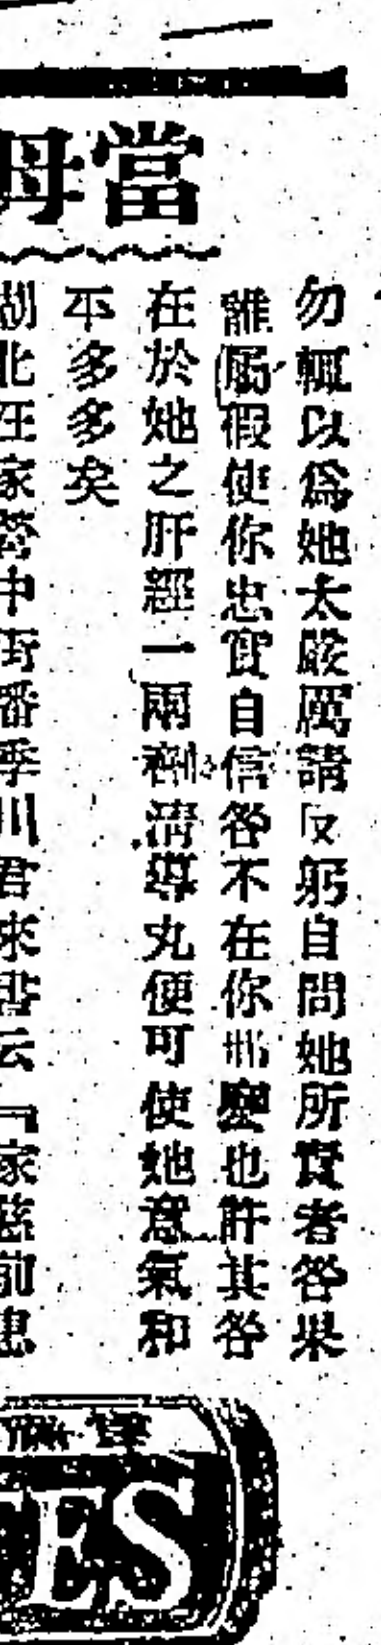 當母
勿輒以爲她太嚴厲請反躬自問她所責者咎果
誰屬假使你忠實自信咎不在你那麼也許其咎
在於她之肝經一兩劑淸導丸便可使她意氣和
平多多矣
湖北汪家營中街番季川君來書云『家慈前患
ES